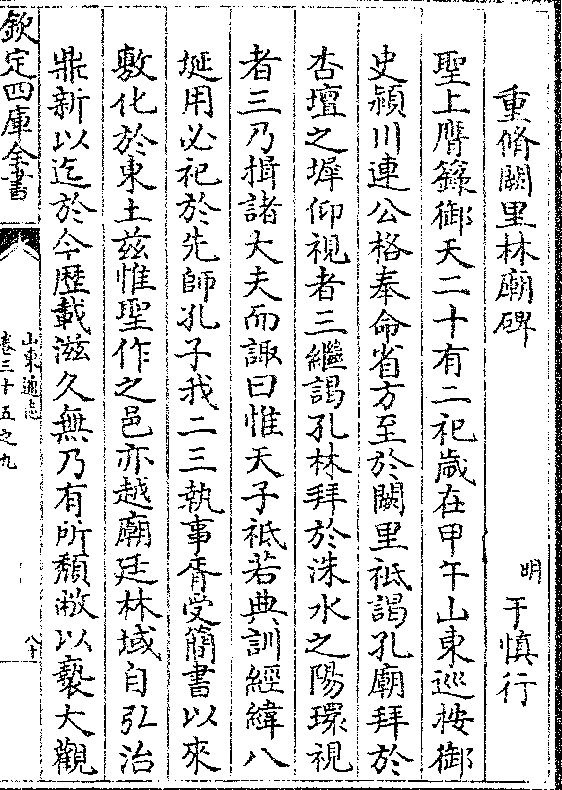 重脩闕里林廟碑
明 于慎行
聖上膺籙御天二十有二祀嵗在甲午山東巡按御
史潁川連公格奉命省方至於闕里祗謁孔廟拜於
杏壇之墀仰視者三繼謁孔林拜於洙水之陽環視
者三乃揖諸大夫而諏曰惟天子祗若典訓經緯八
埏用必祀於先師孔子我二三執事胥受簡書以來
敷化於東土兹惟聖作之邑亦越廟廷林域自弘治
鼎新以迄於今歴載滋久無乃有所頽敝以䙝大觀
欽定四庫全書
山東通志
卷三十五之九